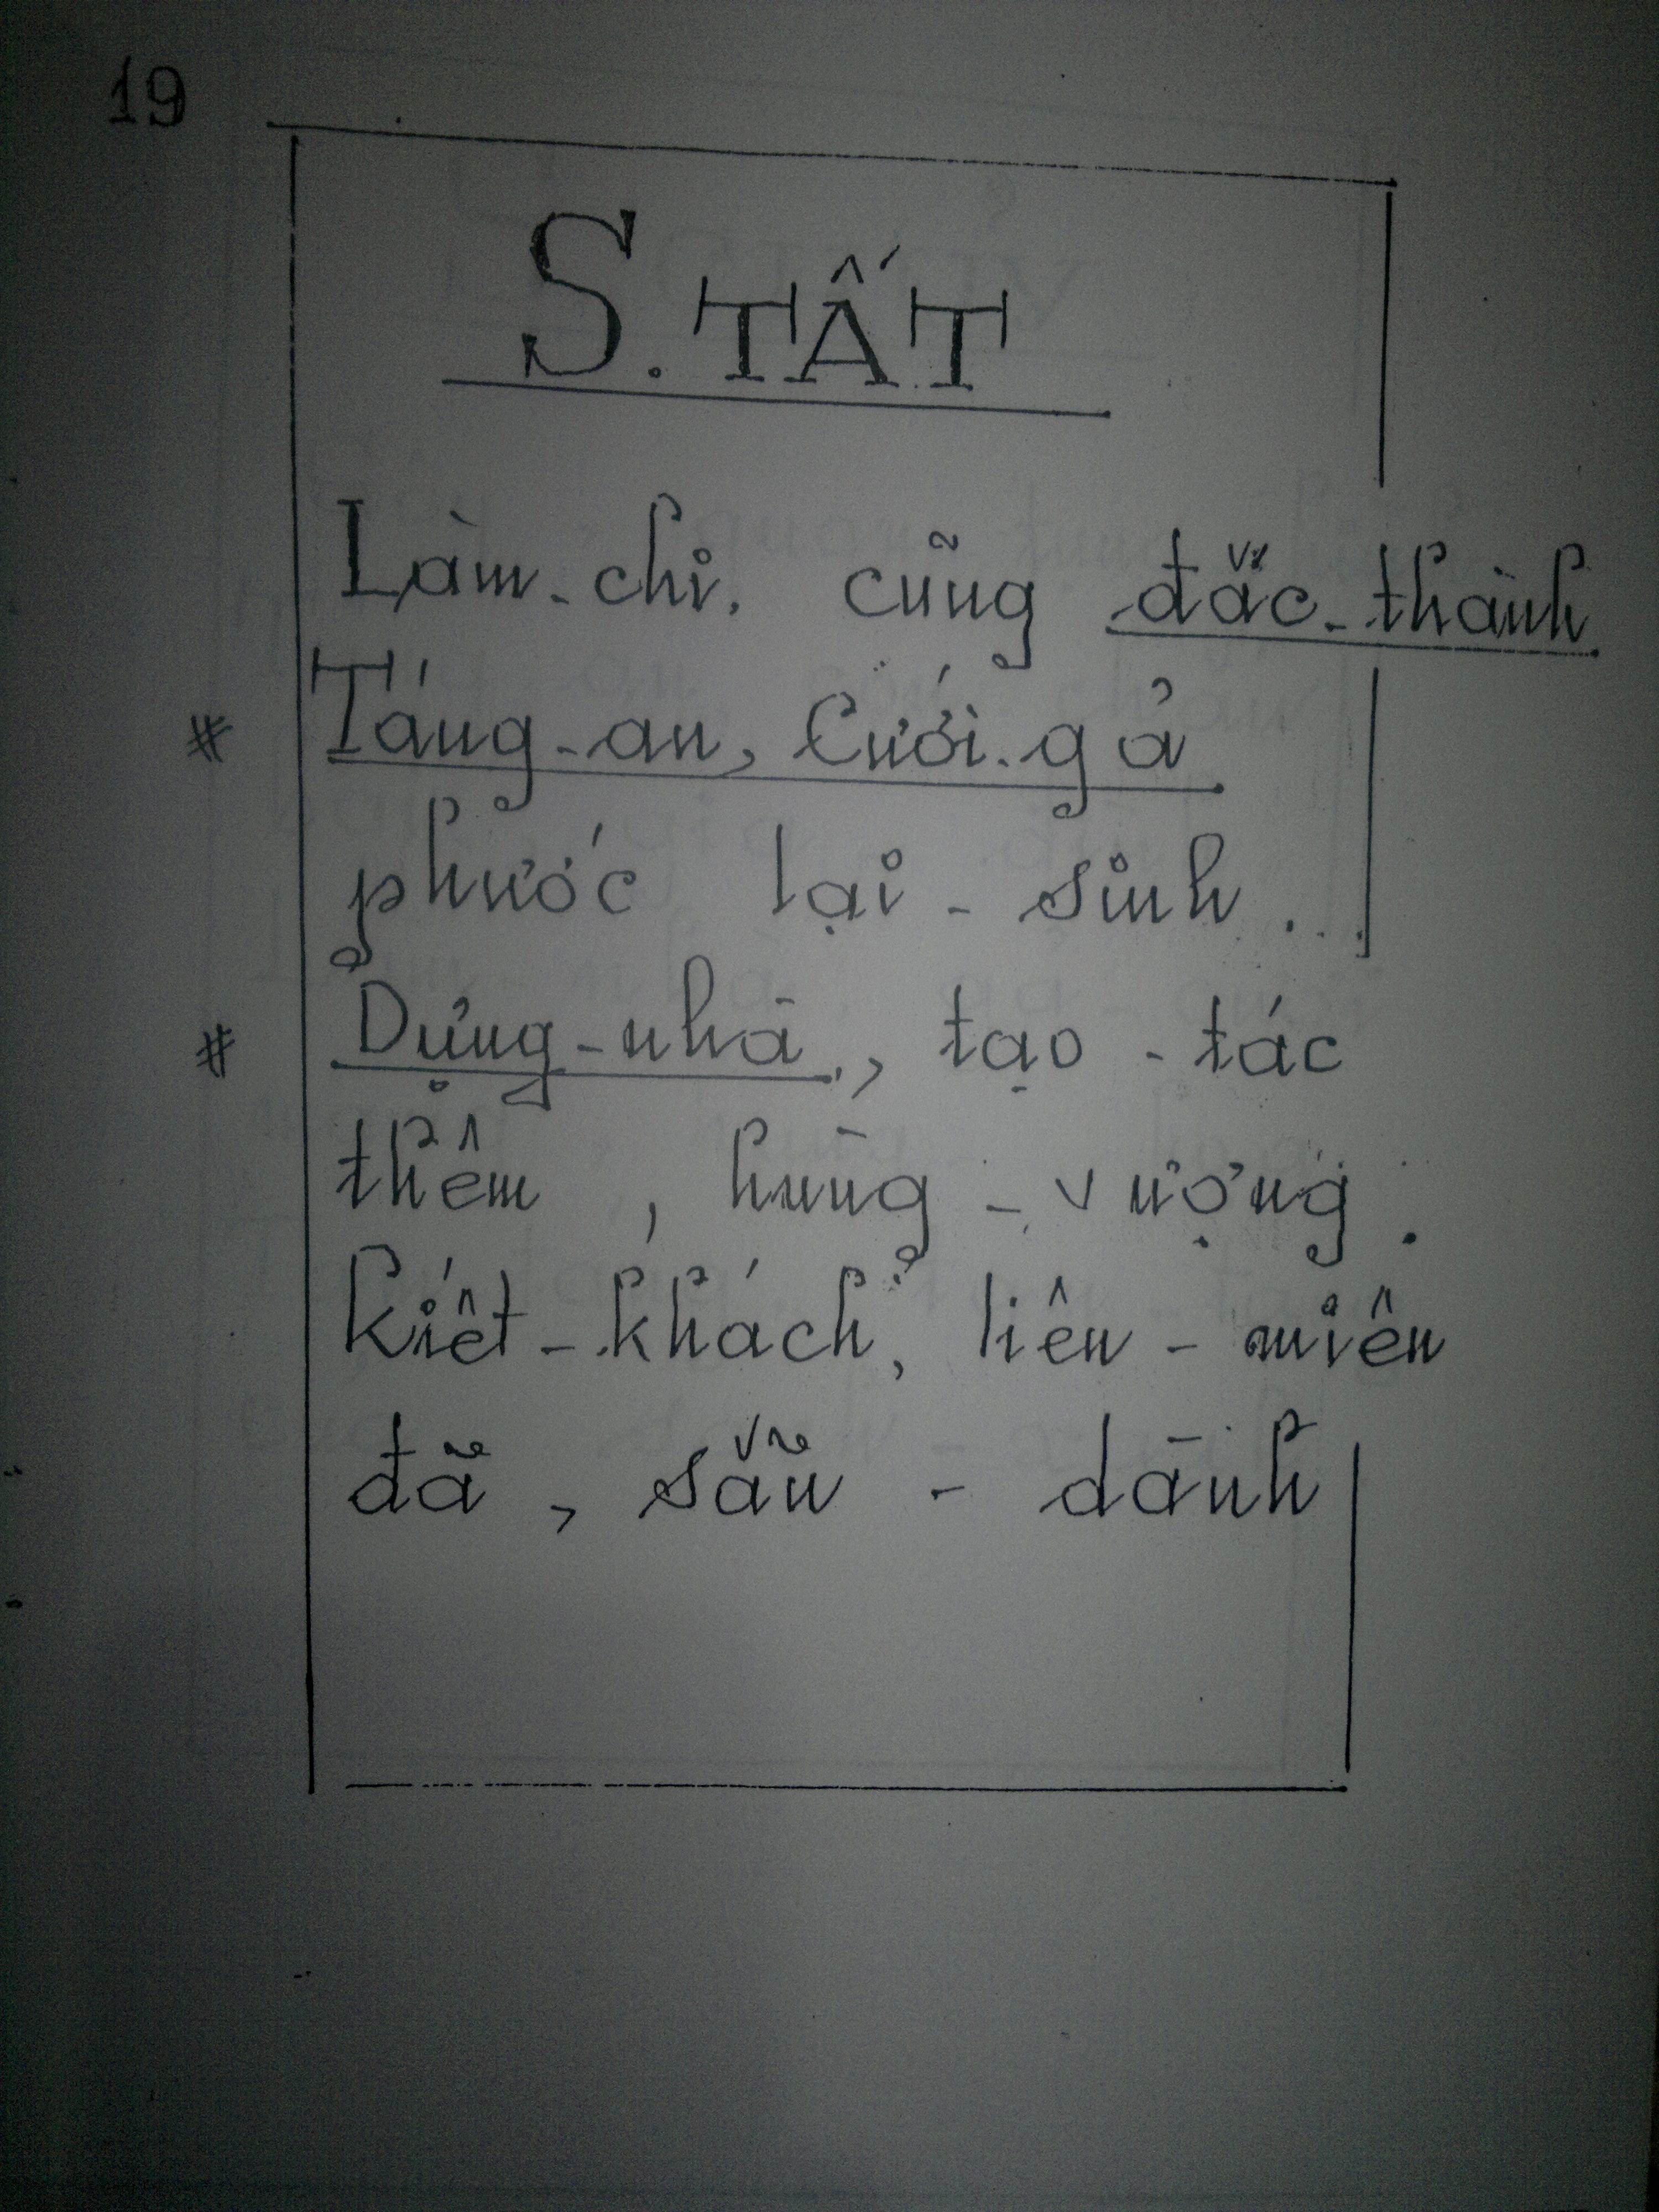 19
S. TẤT
Làm - chi. cũng đắc - thành
# Táng - an, Cưới - gả
phước lại - sinh...
# Dựng - nhà, tạo - tác
thêm, hùng - vượng.
Kiết - khách, liên - miên
đã, sẵn - dành